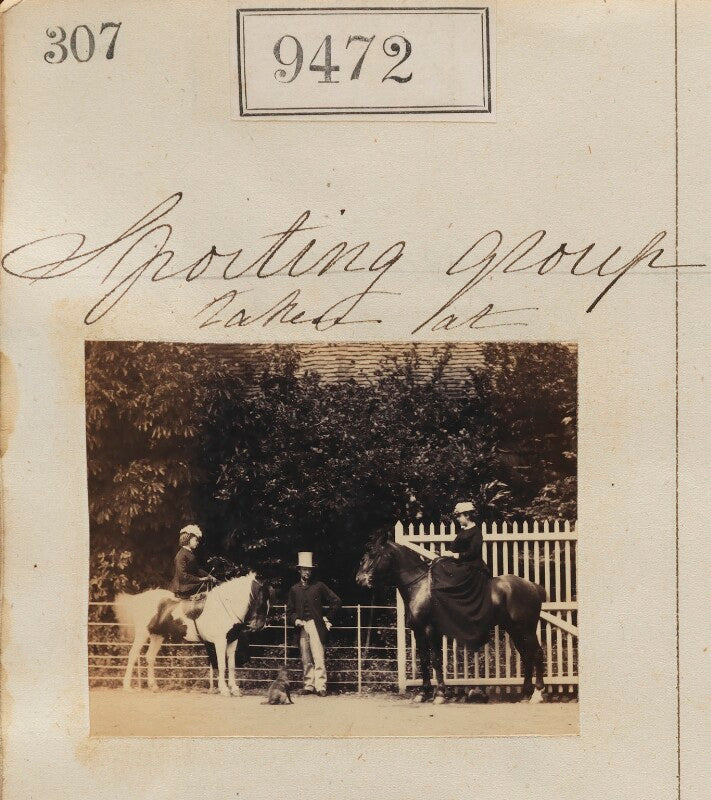 307
9472
Sporting group
taken at